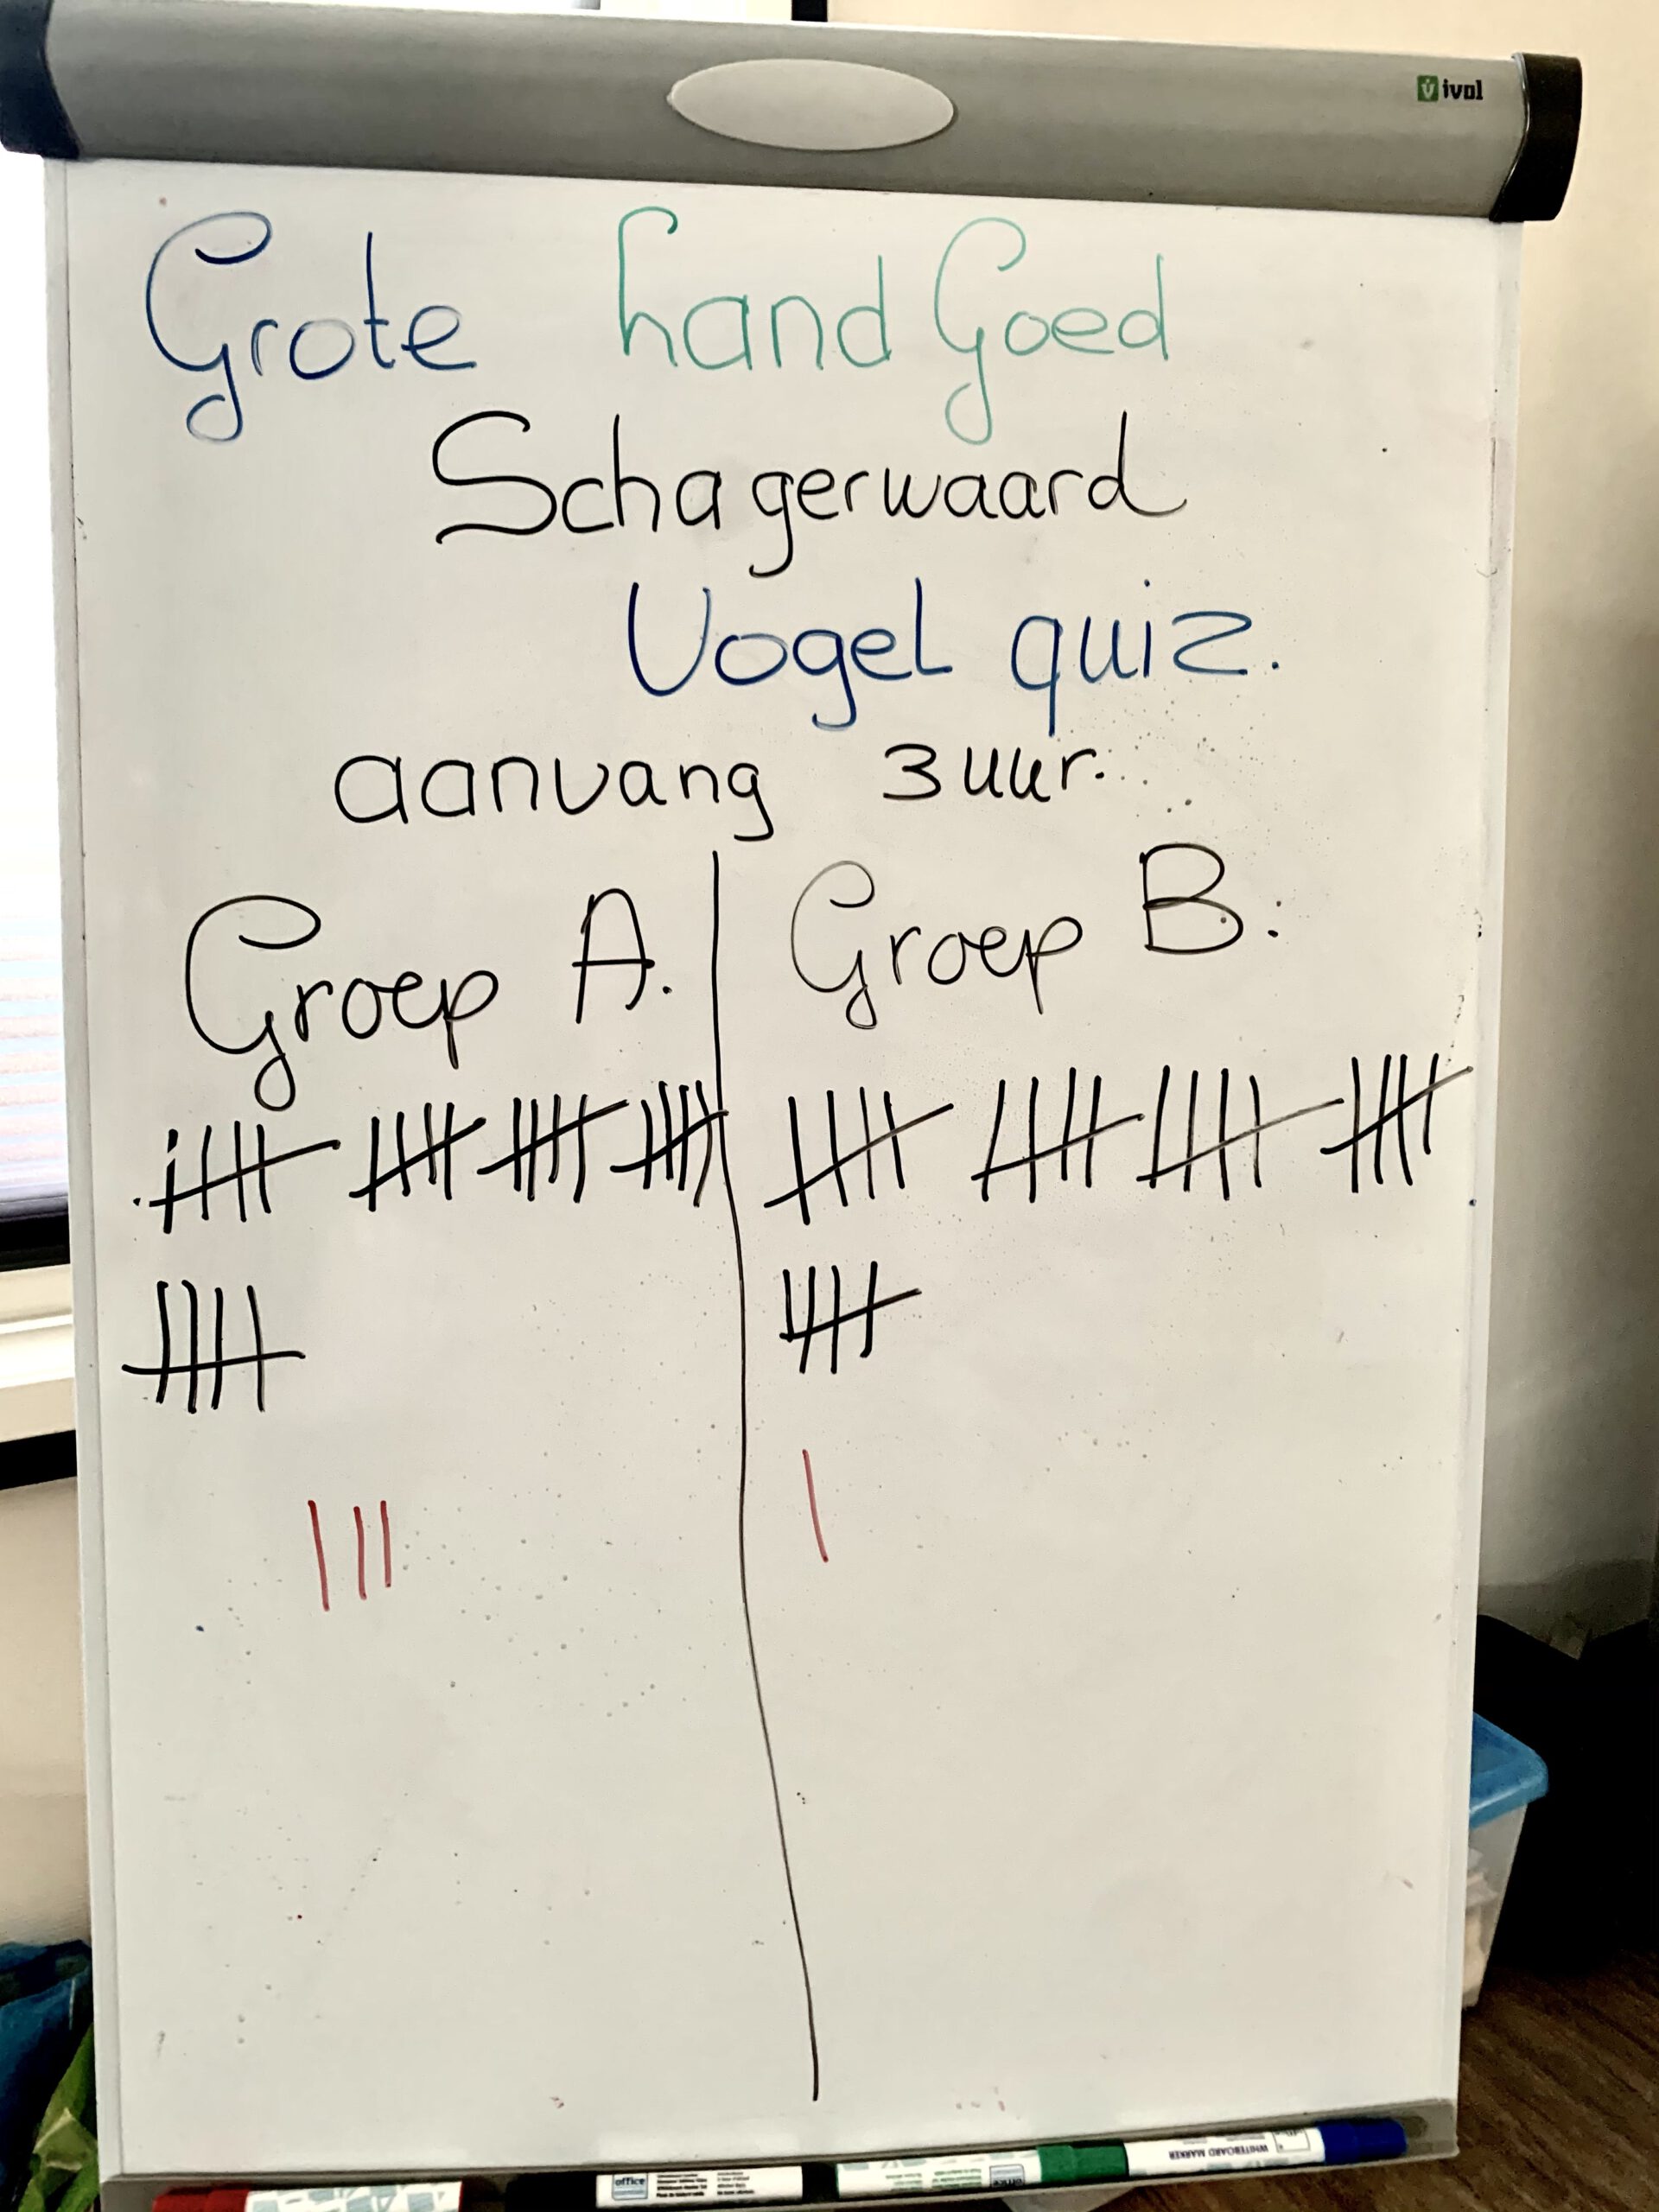 ivol
Grote hand Goed
Schagerwaard
Vogel quiz.
aanvang 3 uur.
Groep A. Groep B:
office
WHITEBOARD MARKER